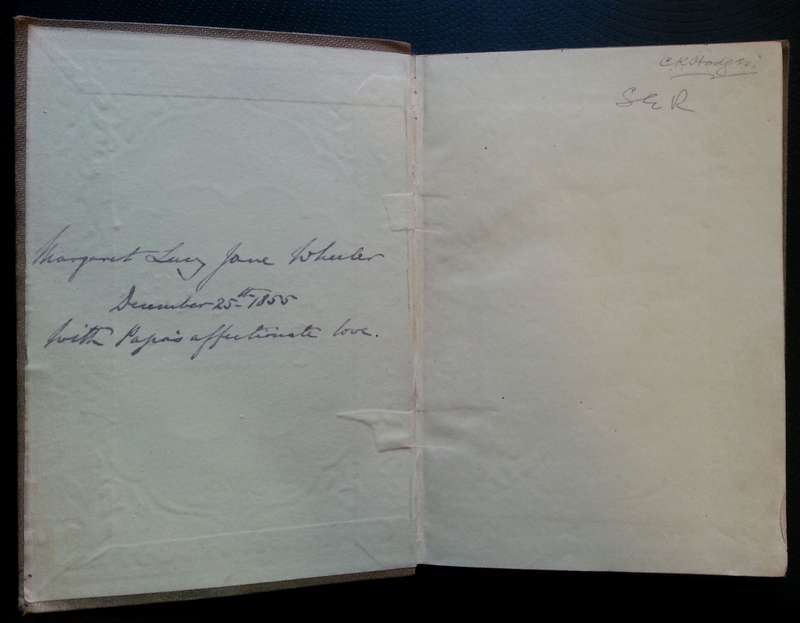 Margaret Lucy Jane Wheeler
December 25th 1855
With Papa's affectionate love.
C.K.
S E R